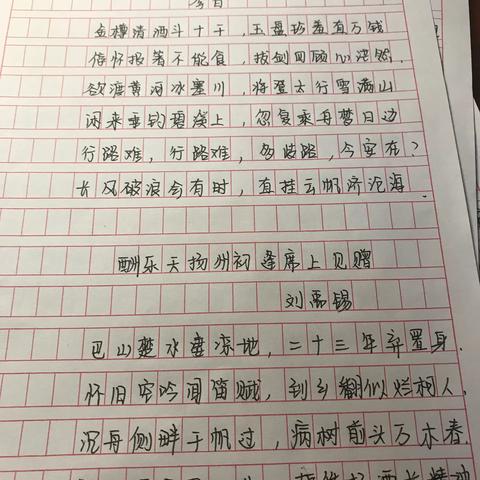 李白
金樽清酒斗十千,玉盘珍羞直万钱
停怀投箸不能食,拔剑四顾心茫然.
欲渡黄河冰塞川,将登太行雪满山
闲来垂钓碧溪上,忽复乘舟梦日边
行路难,行路难,多歧路,今安在?
长风破浪会有时,直挂云帆济沧海.
酬乐天扬州初逢席上见赠
刘禹锡
巴山楚水凄凉地,二十三年弃置身.
怀旧空吟闻笛赋,到乡翻似烂柯人.
沉舟侧畔千帆过,病树前头万木春.
暂凭杯酒长精神